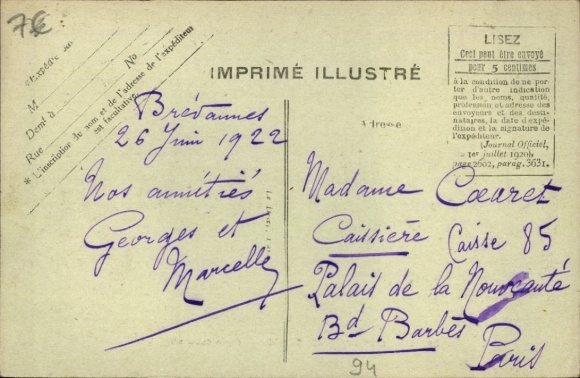 7€
Expéditeur
M
Demt à
Rue No
* L'inscription du nom et de l'adresse de l'expéditeur
est facultative.
IMPRIMÉ ILLUSTRÉ
LISEZ
Ceci peut être envoyé
pour 5 centimes
à la condition de ne por-
ter d'autre indication
que les noms, qualité,
profession et adresse des
envoyeurs et des desti-
nataires, la date d'expé-
dition et la signature de
l'expéditeur.
(Journal Officiel,
1er juillet 1920)
page 2602, parag. 3631.
Brévannes
26 Juin 1922
Nos amitiés
Georges et
Marcelle
Adresse
Madame Cœuret
Caissière Caisse 85
Palais de la Nouveauté
Bd Barbès
Paris
94